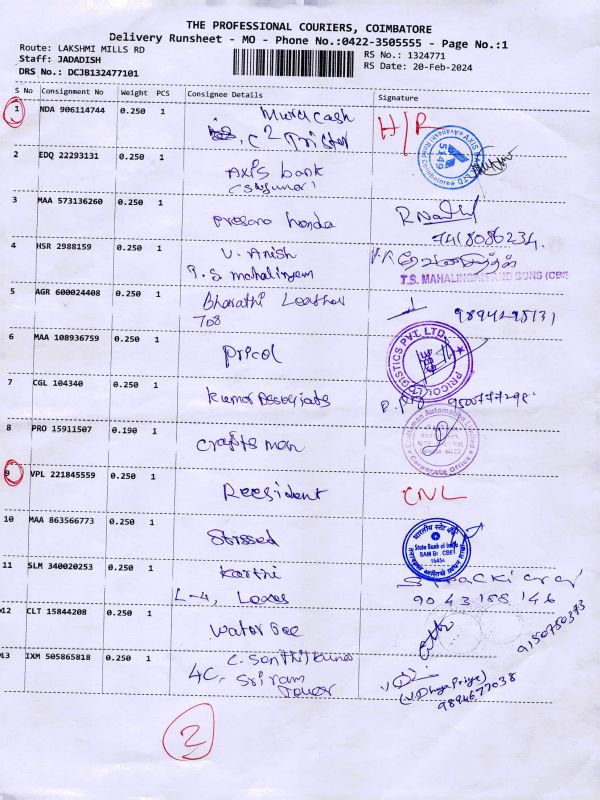 THE PROFESSIONAL COURIERS, COIMBATORE
Delivery Runsheet - MO - Phone No.:0422-3505555 - Page No.:1
Route: LAKSHMI MILLS RD
RS No.: 1324771
Staff: JADADISH
RS Date: 20-Feb-2024
DRS No.: DCJB132477101
S No Consignment No Weight PCS Consignee Details Signature
1 NDA 906114744 0.250 1
H/R
2 EDQ 22293131 0.250 1 Axis bank
3 MAA 573136260 0.250 1 prasana honda
4 HSR 2988159 0.250 1 V. Anish
T.S mahalingam
T.S. MAHALINGAM AND SONS (CBE
5 AGR 600024408 0.250 1 Bharathi Leather
708
6 MAA 108936759 0.250 1 pricol
PRICOL LOGISTICS PVT. LTD.
7 CGL 104340 0.250 1 kumar Associats
8 PRO 15911507 0.190 1 crafts man
Craftsman Automation Limited
Corporate Office
9 VPL 221845559 0.250 1 Reesident CNL
10 MAA 863566773 0.250 1
State Bank of India
11 SLM 340020253 0.250 1 karthi
L-4,
9043155146
12 CLT 15844208 0.250 1 water
9150750373
13 IXM 505865818 0.250 1 C. Senthil kumar
4C, Sriram
Tower
(V. Dhivya Priya)
9894677038
2